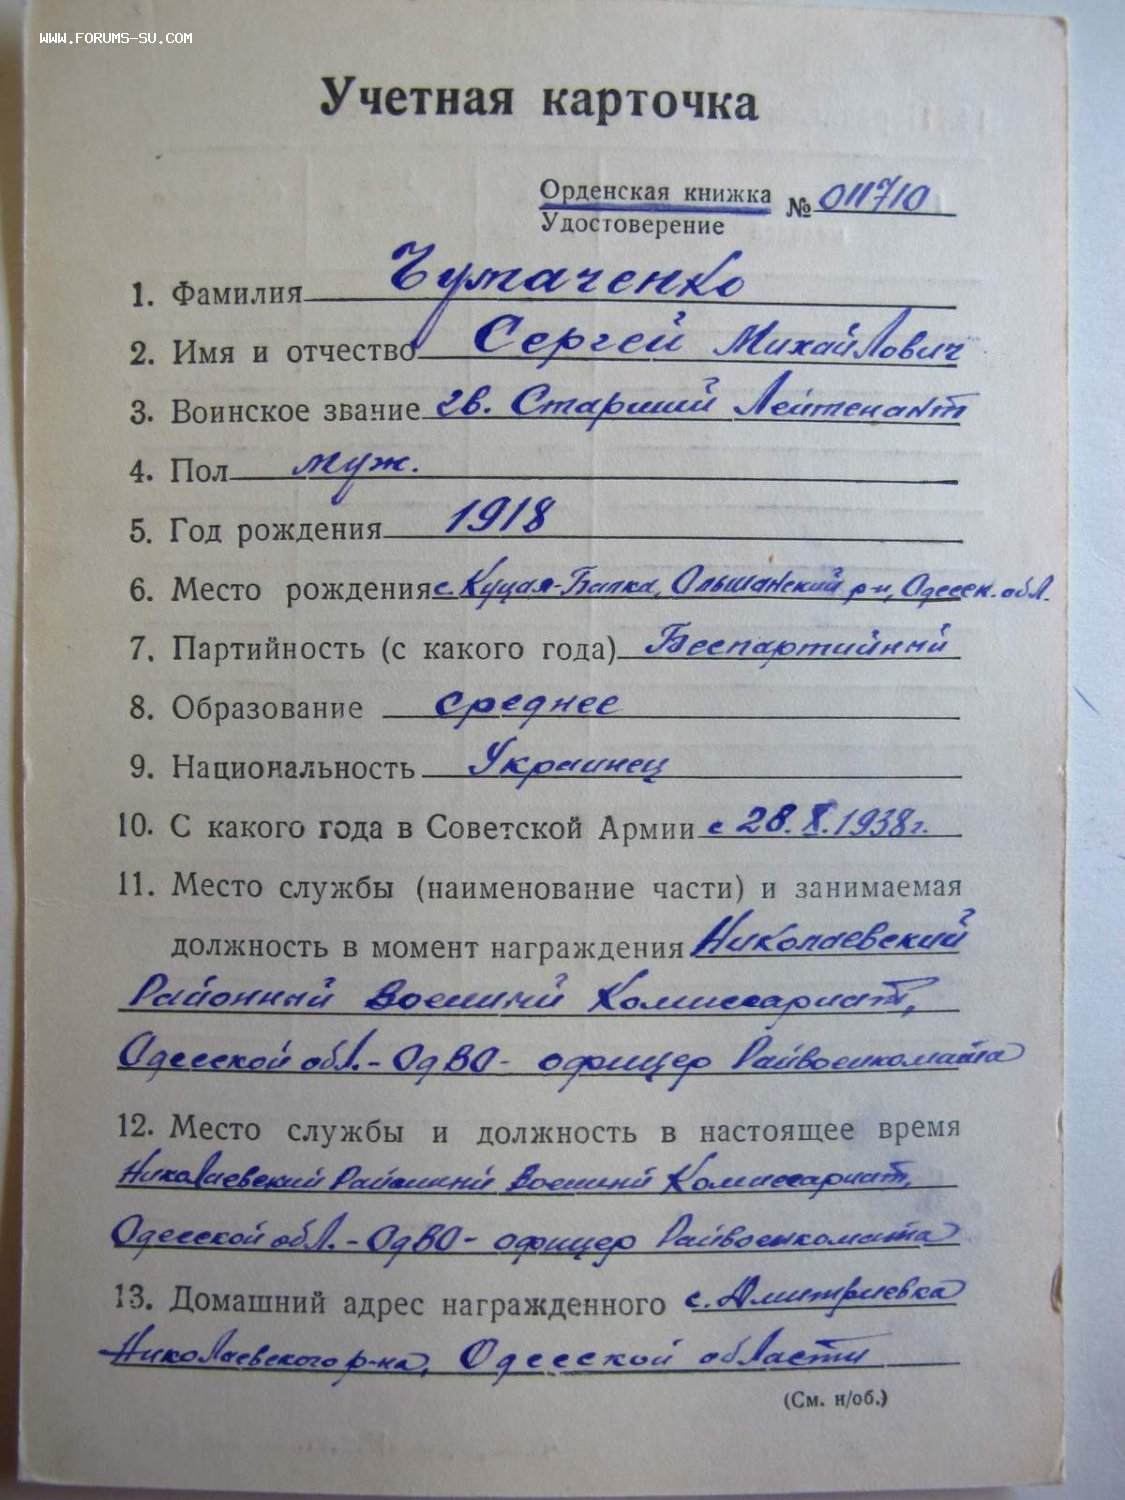 WWW.FORUMS-SU.COM
Учетная карточка
Орденская книжка
Удостоверение № 011710
1. Фамилия Чумаченко
2. Имя и отчество Сергей Михайлович
3. Воинское звание гв. Старший Лейтенант
4. Пол муж.
5. Год рождения 1918
6. Место рождения с. Куцая-Балка, Ольшанский р-н, Одесск. обл.
7. Партийность (с какого года) Беспартийный
8. Образование среднее
9. Национальность Украинец
10. С какого года в Советской Армии с 28.X.1938г.
11. Место службы (наименование части) и занимаемая
должность в момент награждения Николаевский
Районный Военный Комиссариат,
Одесской обл.-ОдВО- офицер Райвоенкомата
12. Место службы и должность в настоящее время
Николаевский Районный Военный Комиссариат,
Одесской обл.-ОдВО- офицер Райвоенкомата
13. Домашний адрес награжденного с. Дмитриевка
Николаевского р-на, Одесской области
(См. н/об.)